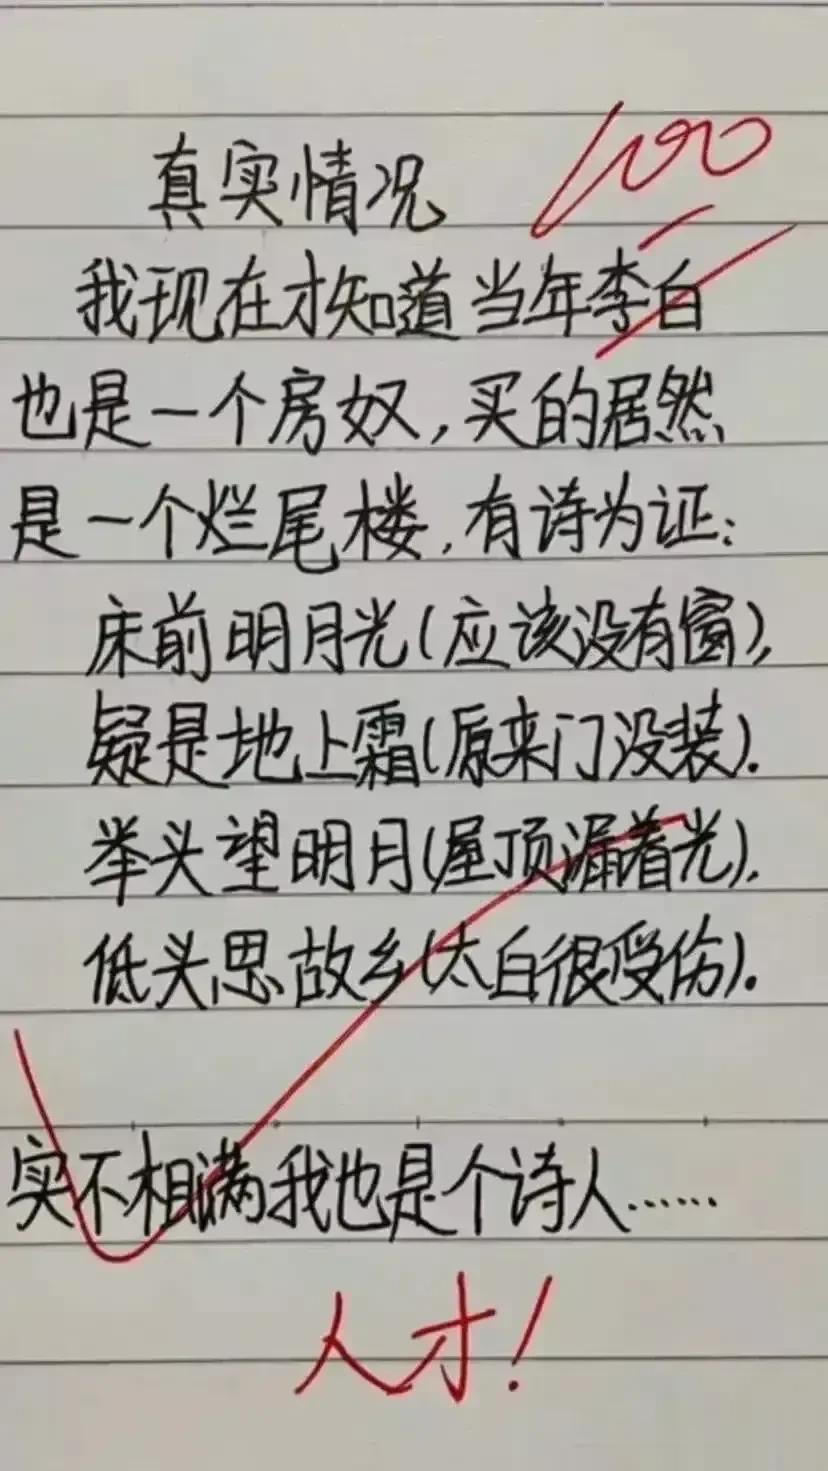 真实情况
100
我现在才知道当年李白
也是一个房奴,买的居然
是一个烂尾楼,有诗为证:
床前明月光(应该没有窗),
疑是地上霜(原来门没装).
举头望明月(屋顶漏着光),
低头思故乡(太白很受伤).
实不相满我也是个诗人……
人才!